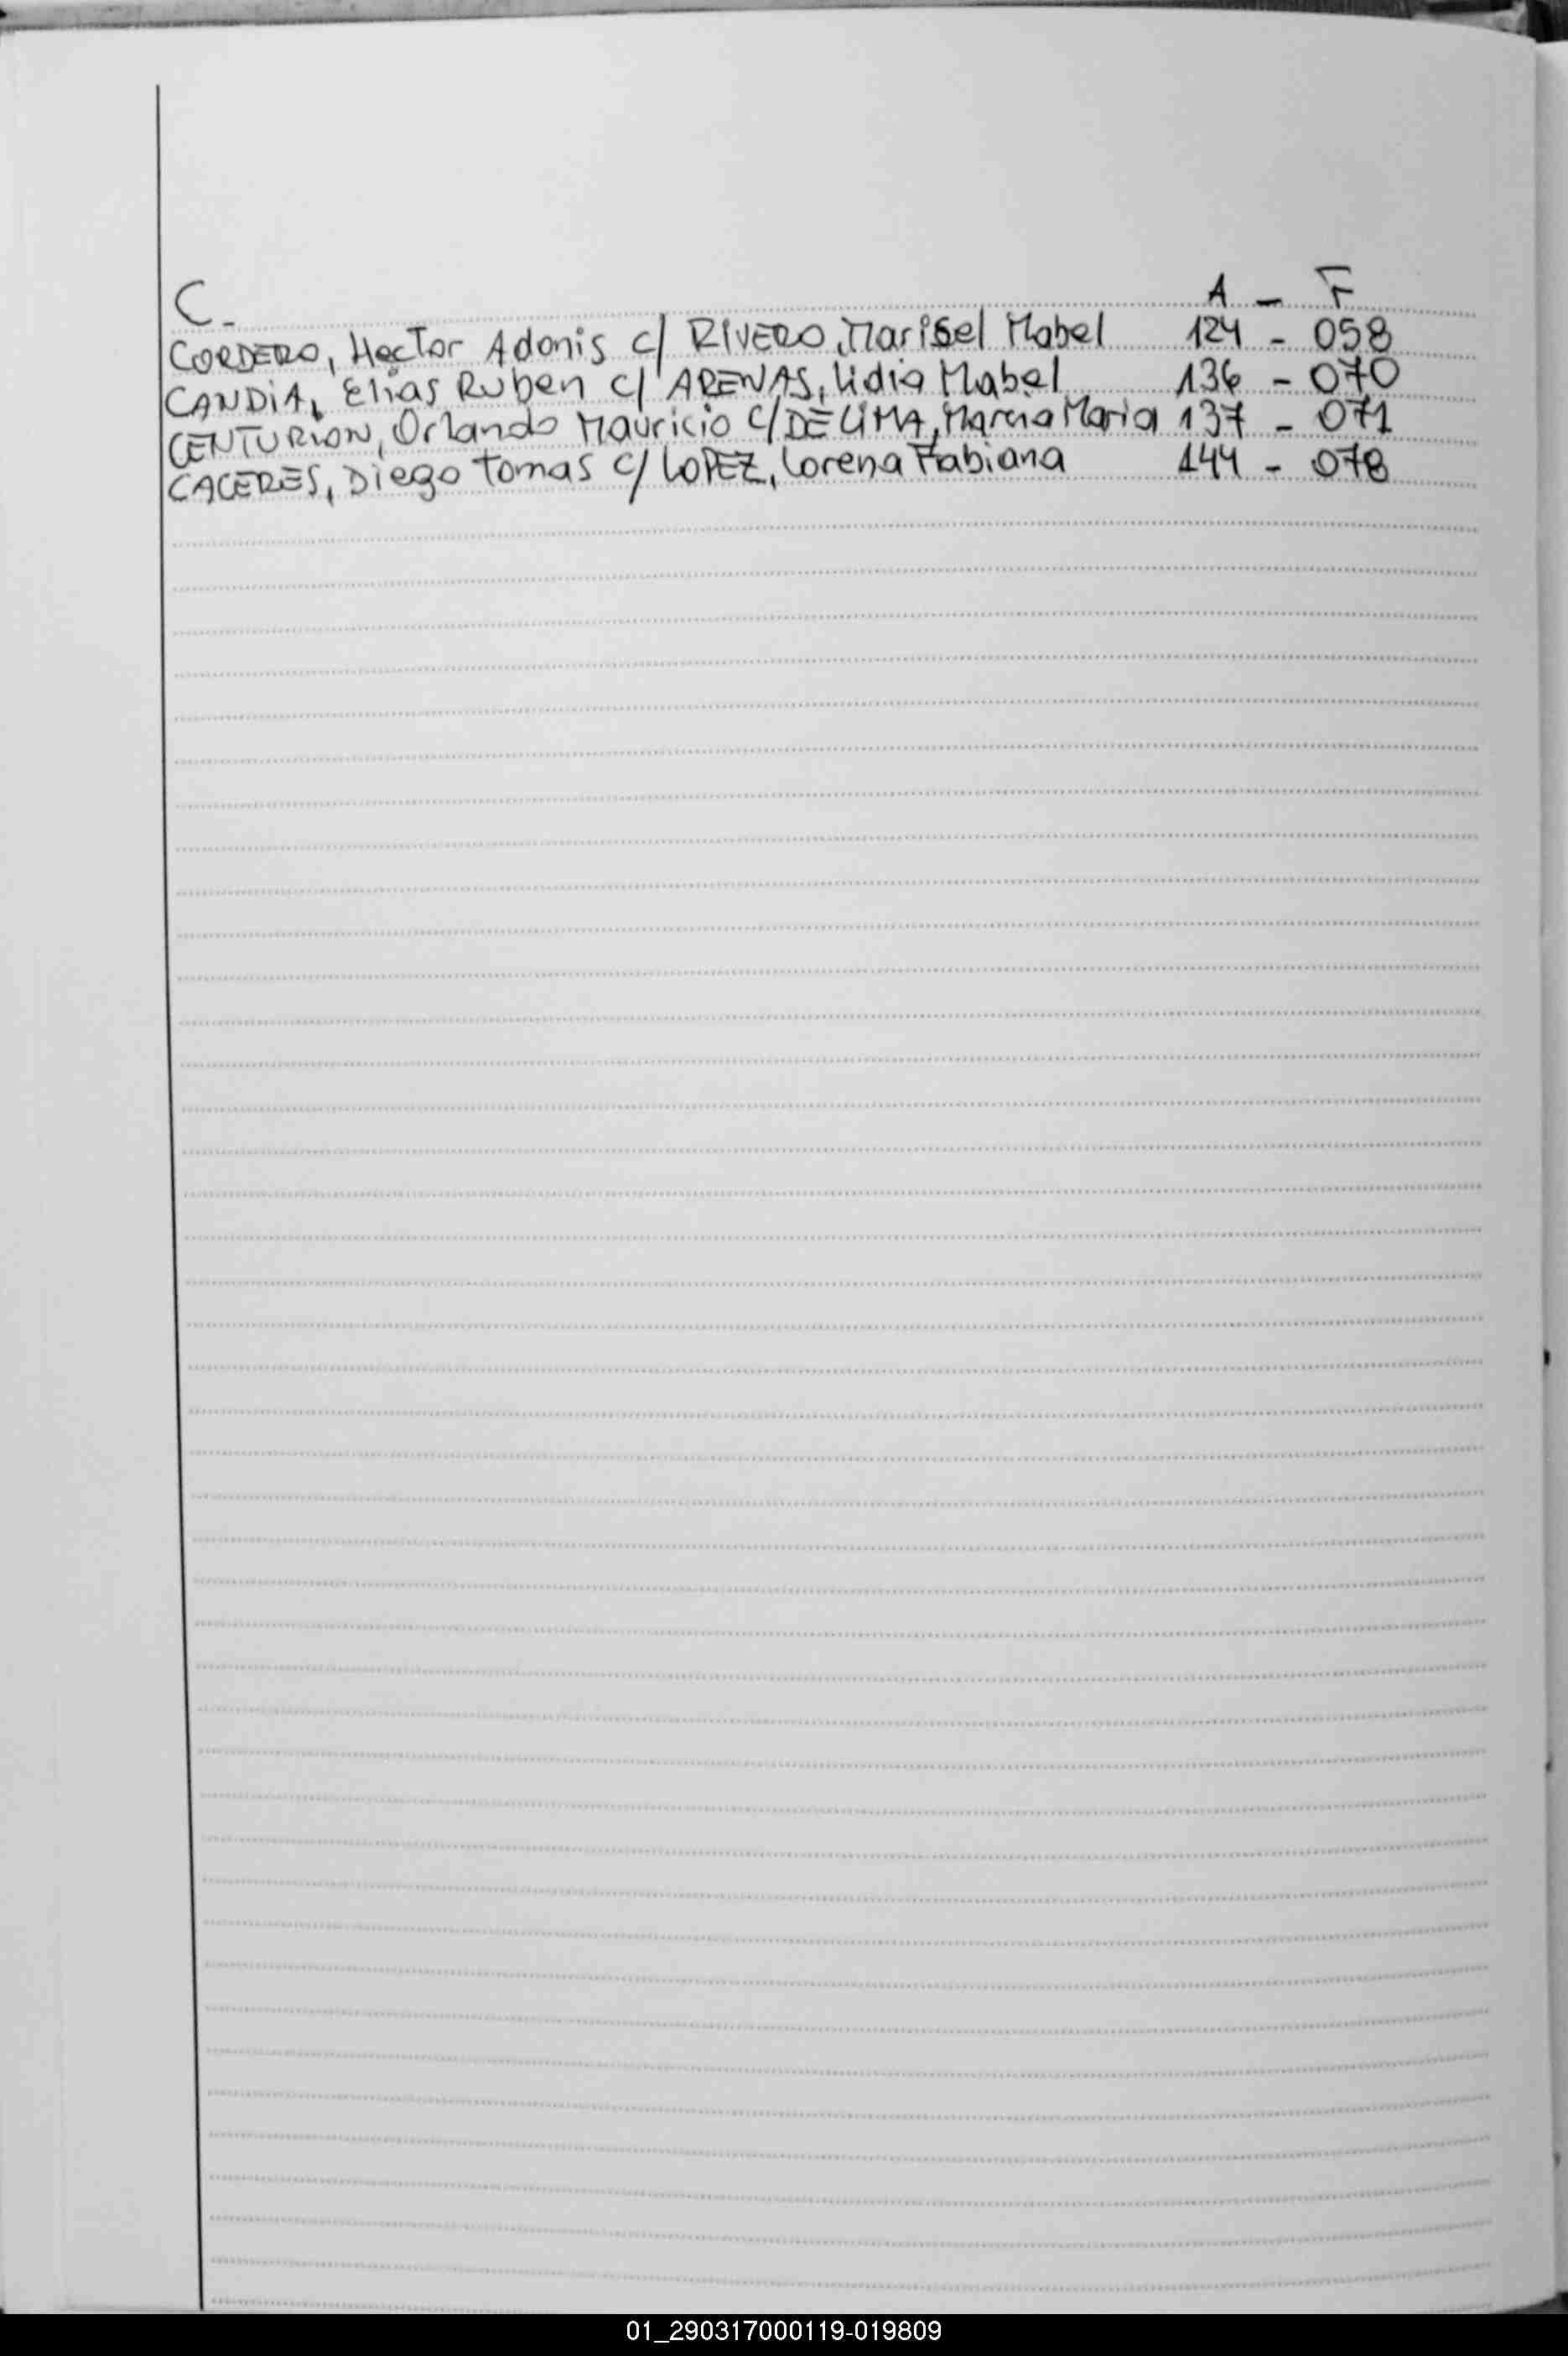 C. A - F
CORDERO, Hector Adonis c/ RIVERO, Marisel Mabel 124 - 058
CANDIA, Elias Ruben c/ ARENAS, Lidia Mabel 136 - 070
CENTURION, Orlando Mauricio c/ DE LIMA, Marcia Maria 137 - 071
CACERES, Diego Tomas c/ LOPEZ, Lorena Fabiana 144 - 078
01_290317000119-019809